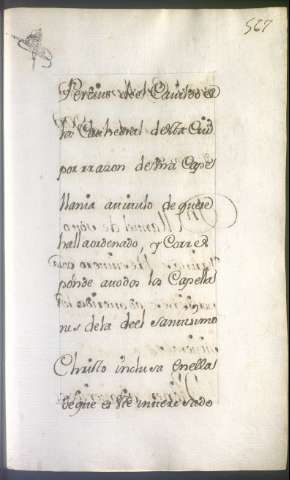 567
Percius del Cavildo de
la Cathedral desta Ciud
por rrazon de vna Cape
llania a titulo de que se
halla ordenado, y Corres
ponde a todos los Capella
nes de la del Santissimo
Christo inclusa en ella
que este interesado